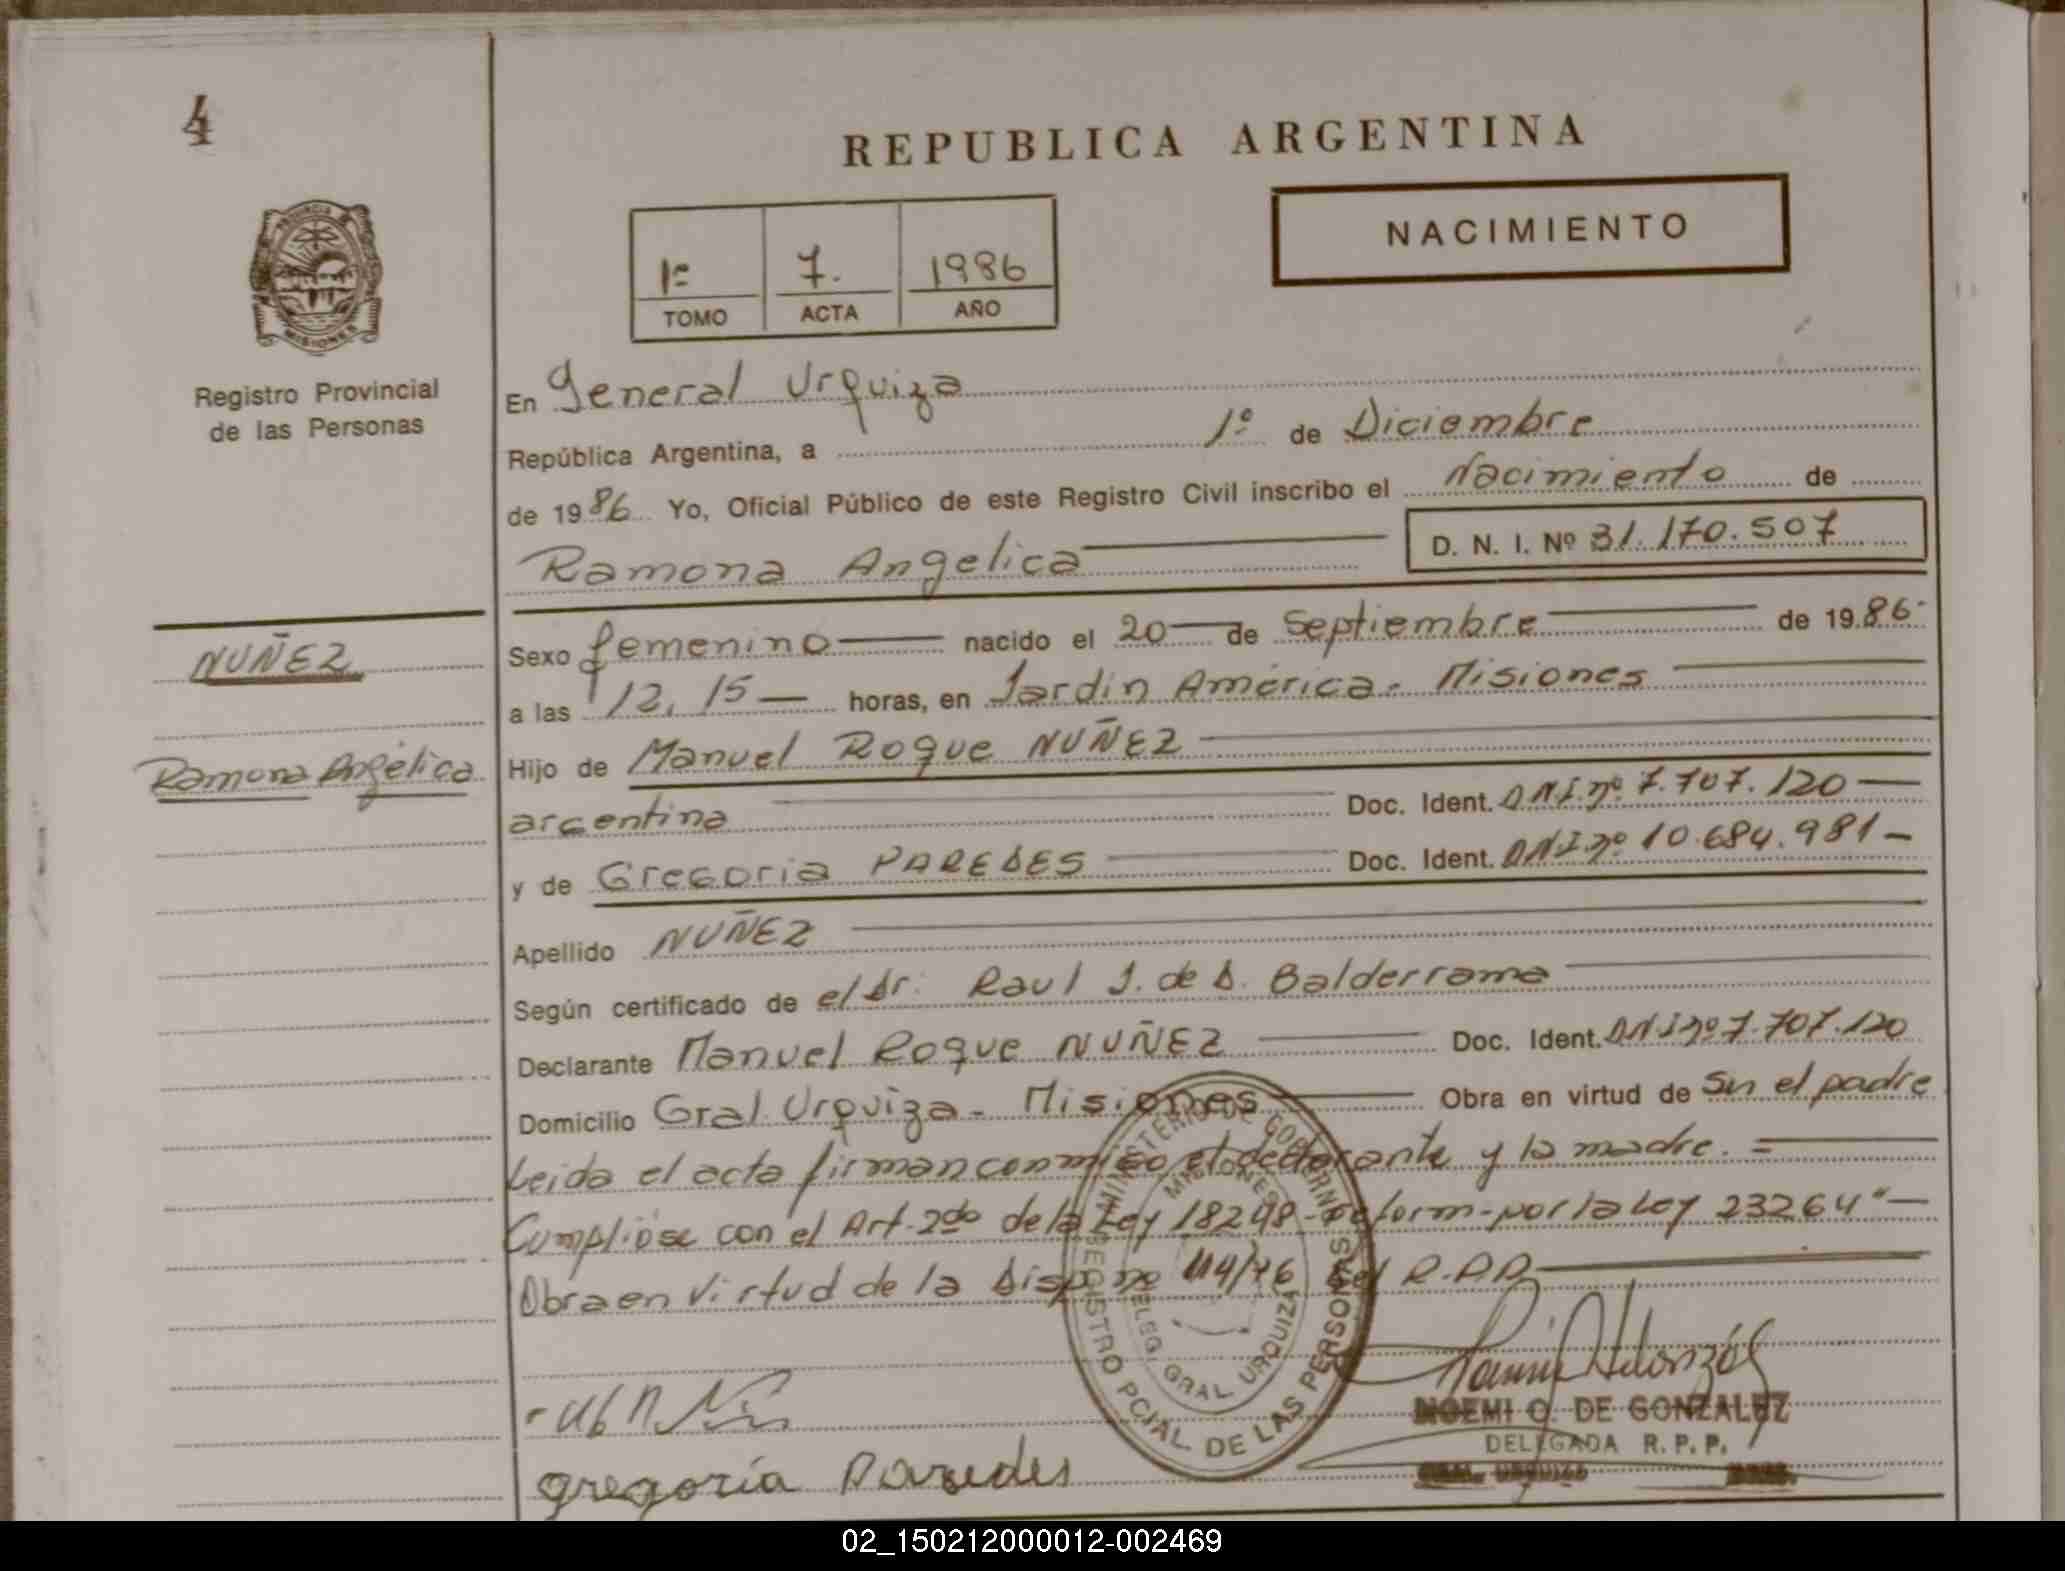 4
REPUBLICA ARGENTINA
NACIMIENTO
1º 7. 1986
TOMO ACTA AÑO
PROVINCIA DE
MISIONES
Registro Provincial
de las Personas
En General Urquiza
República Argentina, a 1º de Diciembre
de 1986 Yo, Oficial Público de este Registro Civil inscribo el Nacimiento de
Ramona Angelica D. N. I. Nº 31.170.507
NUÑEZ
Ramona Angélica
Sexo femenino nacido el 20 de Septiembre de 1986
a las 12,15 horas, en Jardin América - Misiones
Hijo de Manuel Roque NUÑEZ
argentina Doc. Ident. DNI.nº 7.707.120
y de Gregoria PAREDES Doc. Ident. DNI.nº 10.684.981
Apellido NUÑEZ
Según certificado de el Dr. Raul J. de D. Balderrama
Declarante Manuel Roque NUÑEZ Doc. Ident. DNI nº 7.707.120
Domicilio Gral. Urquiza - Misiones Obra en virtud de Sn el padre
Leida el acta firman conmigo el declarante y la madre. =
Cumpliose con el Art. 2do de la Ley 18248 - reform - por la Ley 23264" -
Obra en virtud de la Disp nº 114/76 del R.P.P.
MINISTERIO DE GOBIERNO
MISIONES
REGISTRO PCIAL. DE LAS PERSONAS
DELEG. GRAL. URQUIZA
NOEMI O. DE GONZALEZ
DELEGADA R. P. P.
GRAL. URQUIZA
gregoria Paredes
02_150212000012-002469